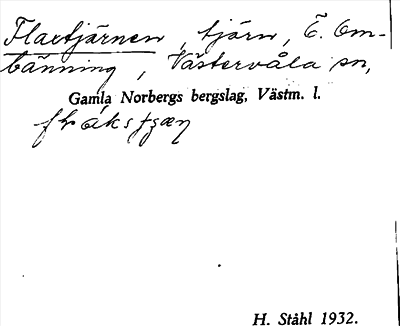 Flaxtjärnen, tjärn, Ö. Om-
bänning, Västervåla sn,
Gamla Norbergs bergslag, Västm. l.
H. Ståhl 1932.